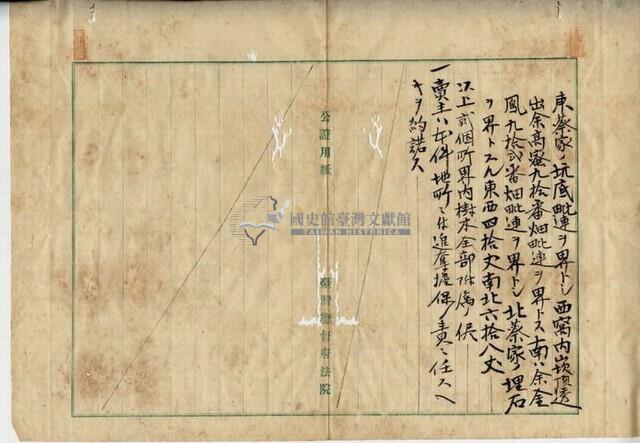 東蔡家ノ坑底毗連ヲ界トシ西窩内崁頂透
出余高蜜九拾番畑毗連ヲ界トス南ハ余金
鳳九拾弐番畑毗連ヲ界トシ北蔡家ノ埋石
ヲ界トスル東西四拾丈南北六拾八丈
以上弐個所界内樹木全部附屬ノ侭
一賣主ハ本件地所ニ付追奪擔保ノ責ニ任スヘ
キヲ約諾ス
公證用紙
臺灣總督府法院
國史館臺灣文獻館
TAIWAN HISTORICA